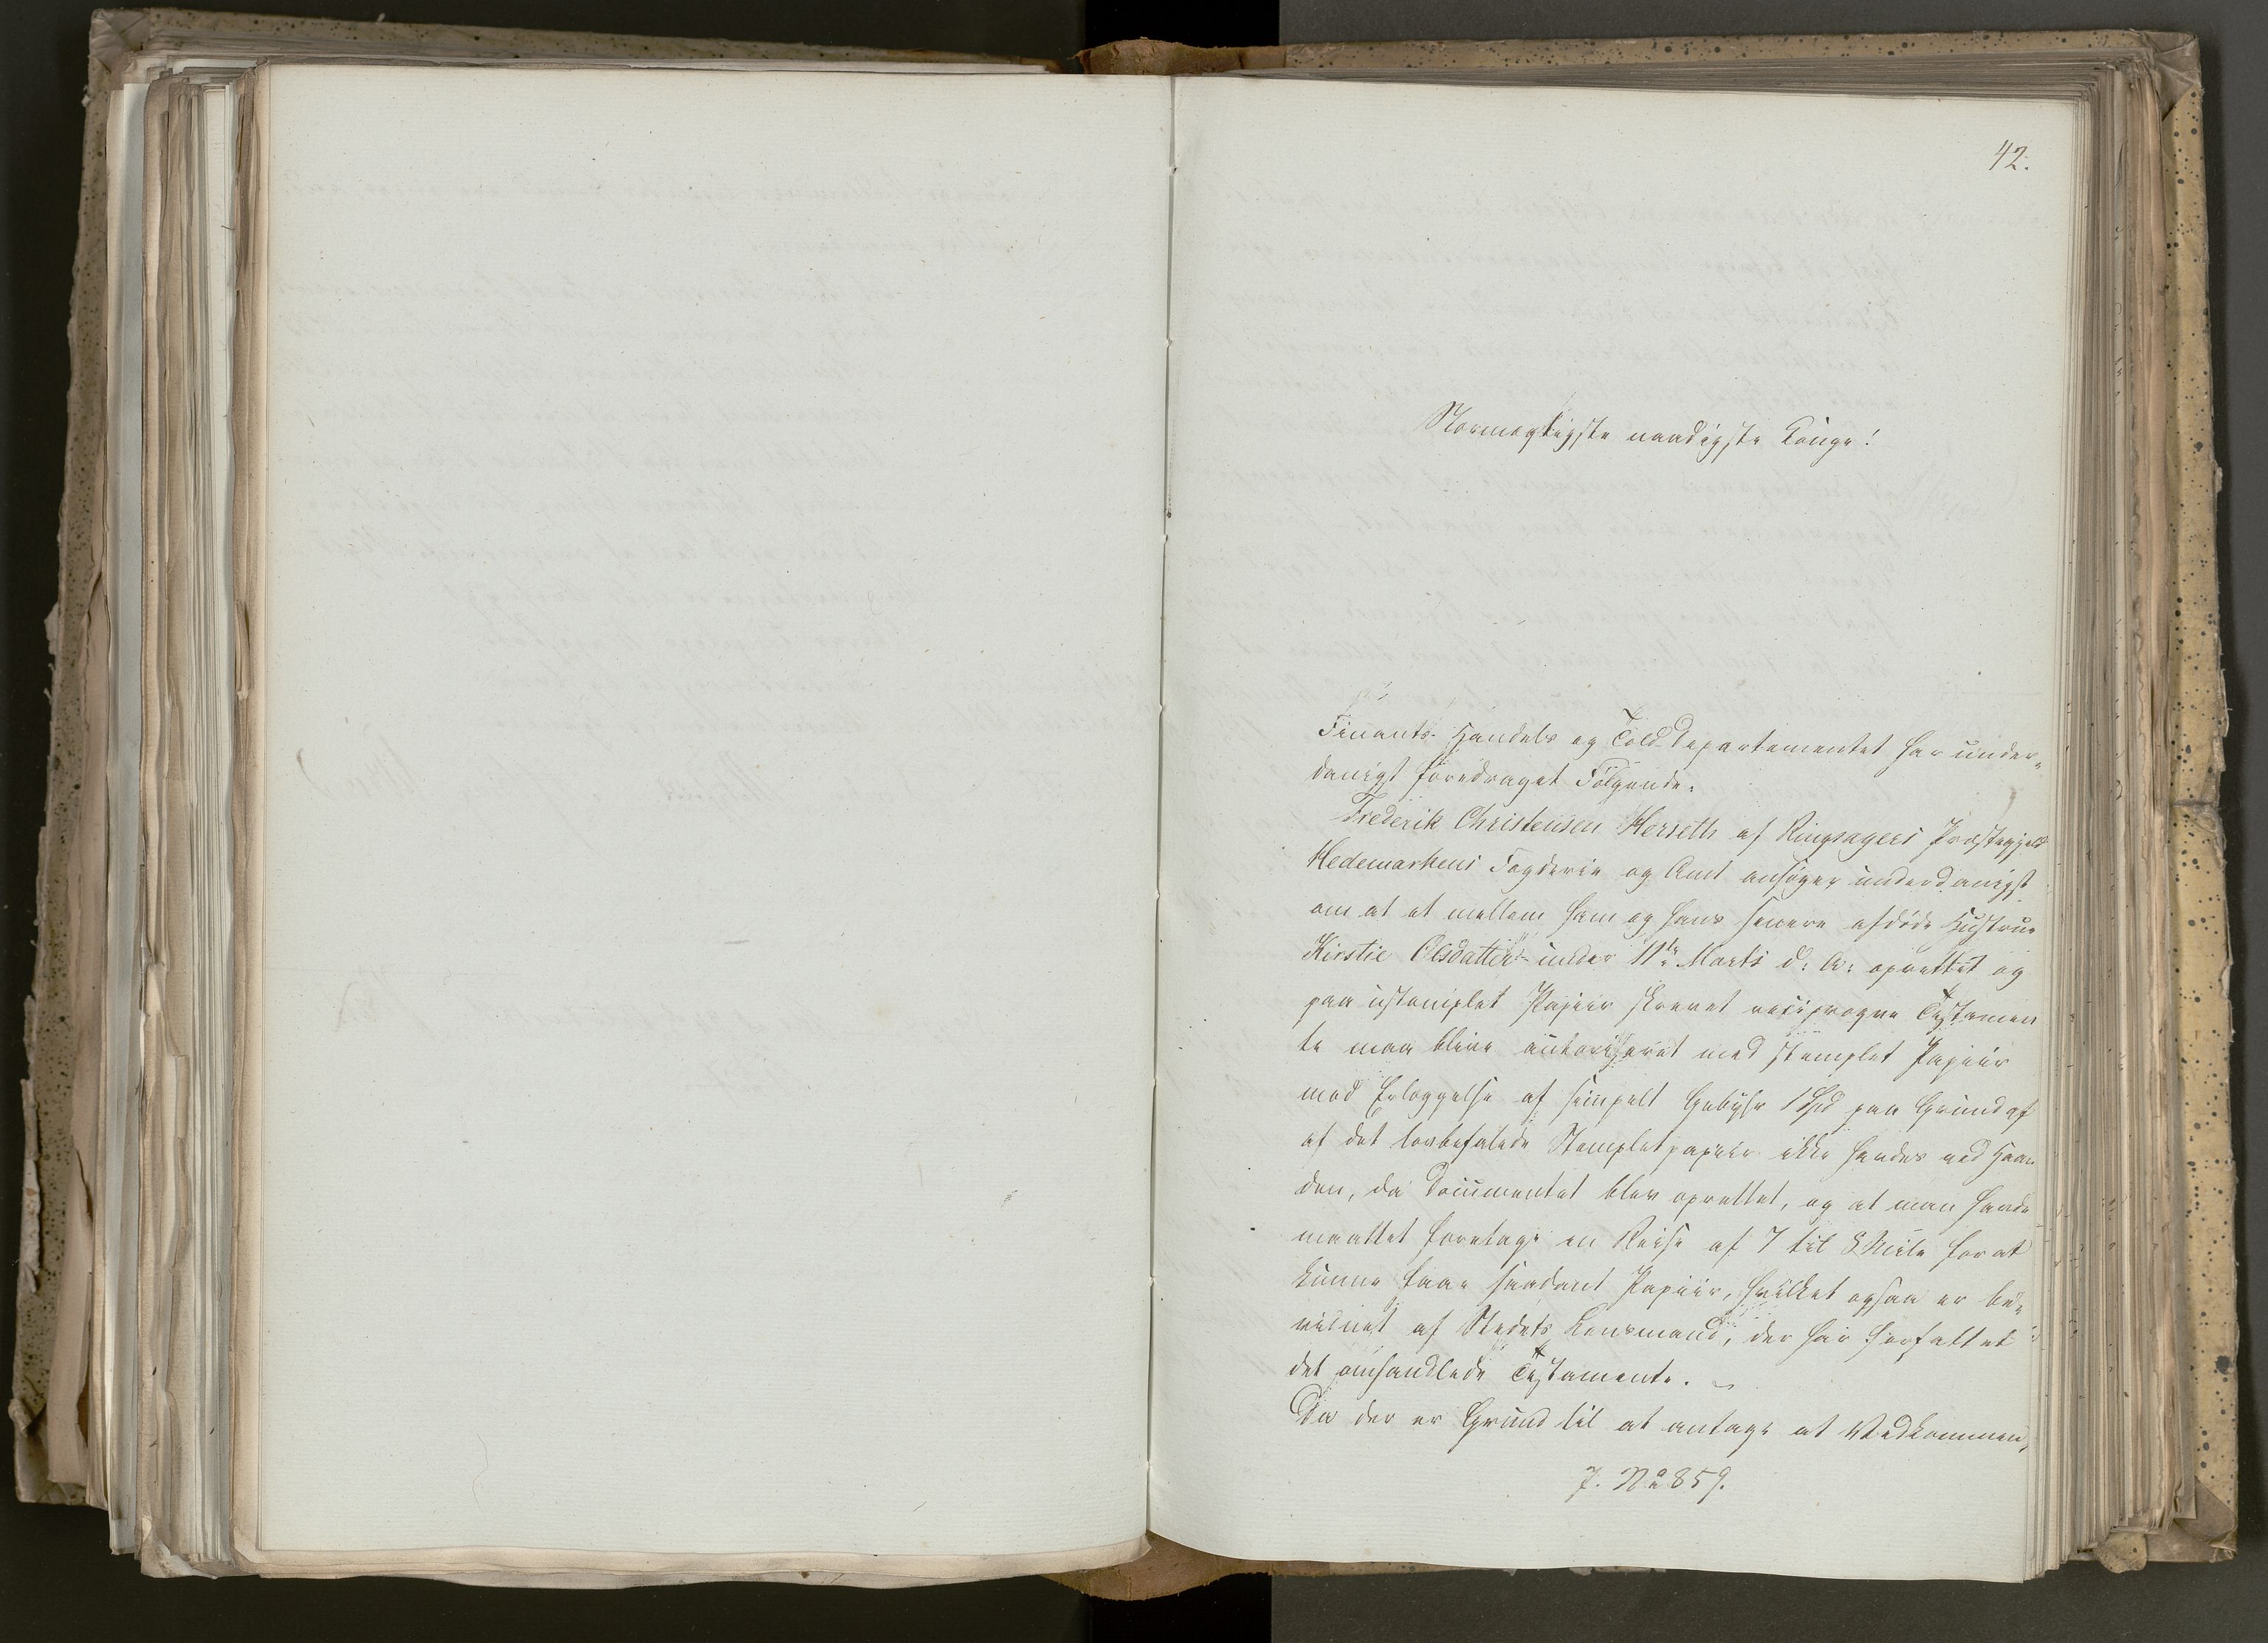 42.
Stormægtigste naadigste Konge!
Finants- Handels og Told-Departementet har under-
danigst foredraget Følgende.
Frederik Christensen Herseth af Ringsagers Præstegjeld
Hedemarkens Fogderie og Amt ansøger underdanigst
om at et mellem ham og hans senere afdøde Hustrue
Kirstie Olsdatter under 11te Marts d: A: oprettet og
paa ustemplet Papiir skrevet reciproque Testamen
te maa blive autoriseret med stemplet Papiir
mod Erlæggelse af simpelt Gebyhr 1 Spd paa Grund af
at det lovbefalede Stempletpapiir ikke havdes ved Haan
den, da Documentet blev oprettet, og at man havde
maattet foretage en Reise af 7 til 8 Mile for at
kunne faae saadant Papiir, hvilket ogsaa er be-
vidnet af Stedets Lensmand, der har forfattet
det omhandlede Testamente.
Da der er Grund til at antage at Vedkommen,
J. No 859.